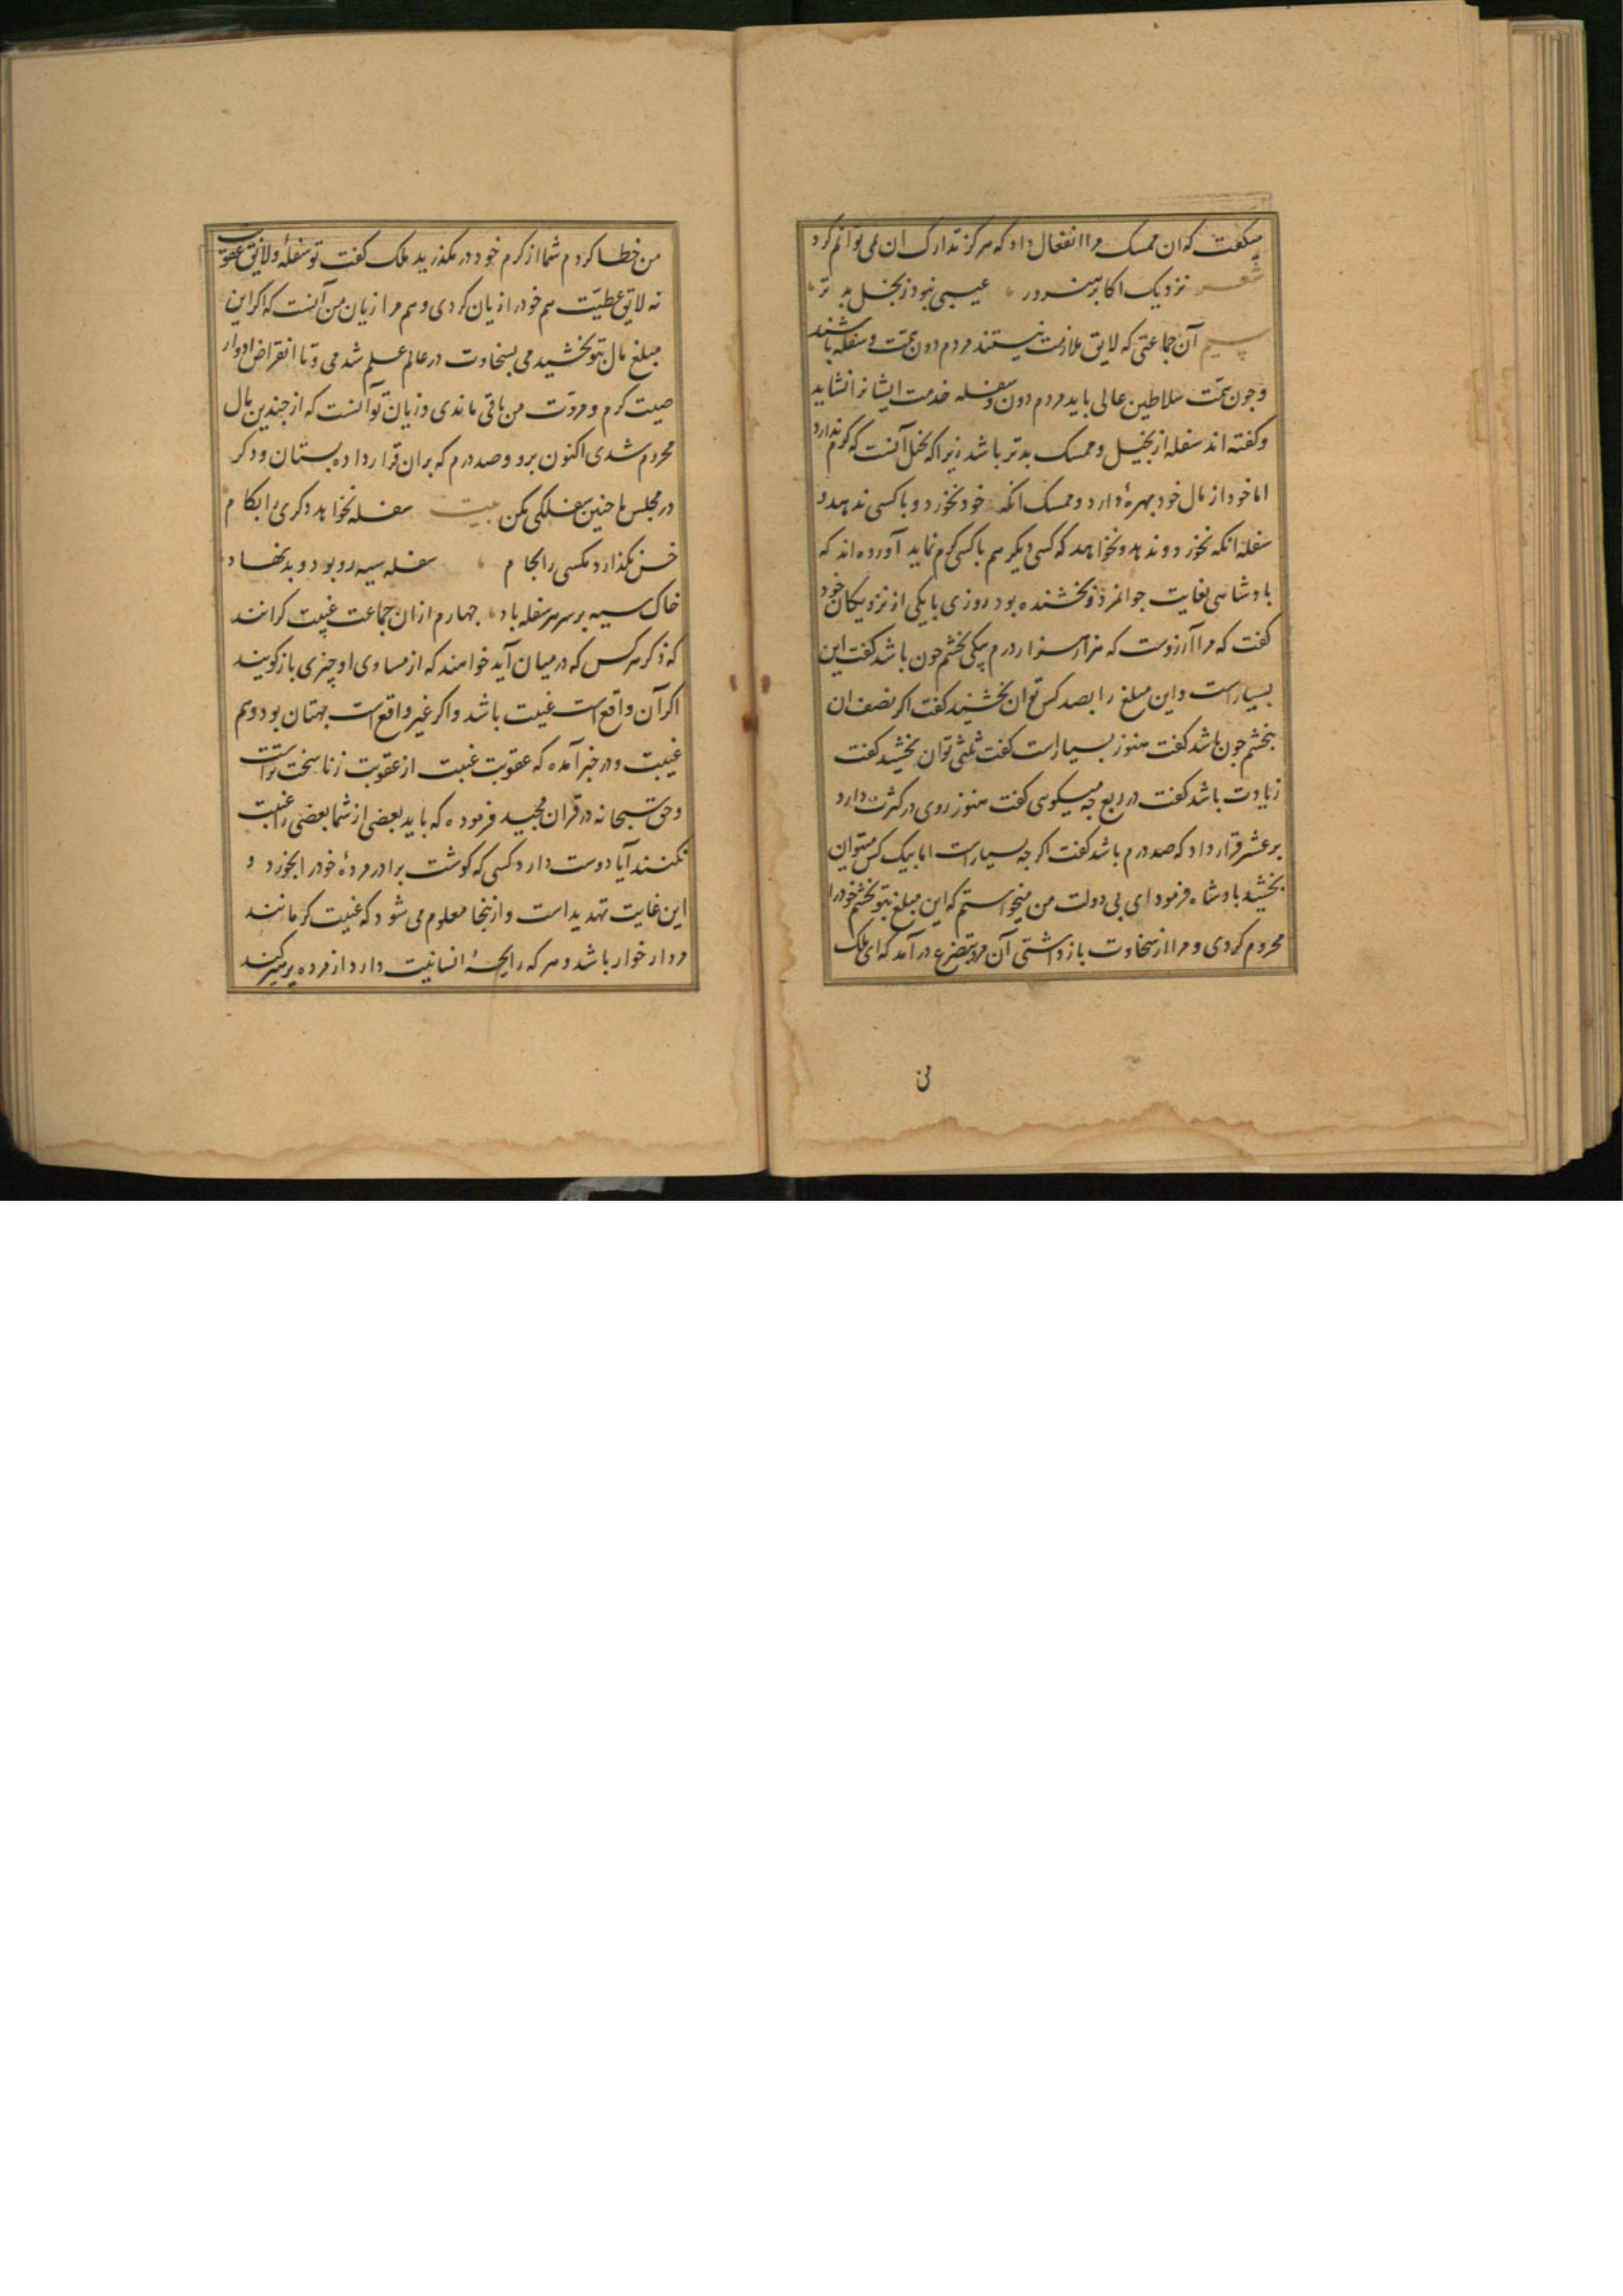 میگفت که ان ممسک مرا انفعال داد که هرکز تدارک ان نمی توانم کرد
شعر نزدیک اکابر هنرور عیبی نبود ز بخل بد تر
سیم آن جماعتی که لایق ملازمت نیستند مردم دون همت و سفله باشند
و چون همت سلاطین عالی باید مردم دون و سفله خدمت ایشانرا نشاید
و کفته اند سفله از بخیل و ممسک بدتر باشد زیراکه بخل آنست که کرم ندارد
اما خود از مال خود بهرهٔ دارد و ممسک انکه خود نخورد و با کسی ندهد و
سفله انکه نخورد و ندهد و نخواهد که کسی دیکر هم با کسی کرم نماید آورده اند که
بادشاهی بغایت جوانمرد و بخشنده بود روزی با یکی از نزدیکان خود
کفت که مرا آرزوست که هزار هزار درم بیکی بخشم جون باشد کفت این
بسیار است و این مبلغ را بصد کس توان بخشید کفت اکر نصف ان
بخشم جون باشد کفت هنوز بسیار است کفت ثلثی توان بخشید کفت
زیادت باشد کفت در ربع جه میکوی کفت هنوز روی در کثرت دارد
بر عشر قرار داد که صد درم باشد کفت اکر جه بسیار است اما بیک کس میتوان
بخشید بادشاه فرمود ای بی دولت من میخواستم که این مبلغ بتو بخشم خود را
محروم کردی و مرا از سخاوت باز داشتی آن مرد بتضرع در آمد که ای ملک
من
من خطا کردم شما از کرم خود در مکذرید ملک کفت تو سفلهٔ و لایق عقوبت
نه لایق عطیّت هم خود را زیان کردی و هم مرا زیان من آنست که اکر این
مبلغ مال بتو بخشیدمی بسخاوت در عالم علم شدمی و تا انقراض ادوار
صیت کرم و مروّت من باقی ماندی و زیان تو آنست که از جندین مال
محروم شدی اکنون برو و صد درم که بران قرار داده بستان و دکر
در مجلس ما جنین سفلکی مکن بیت سفله نخواهد دکری را بکام
خس نکذارد مکسی را بجام سفله سیه رو بود و بد نهاد
خاک سیه بر سر هر سفله باد جهارم ازان جماعت غیبت کرانند
که ذکر هر کس که در میان آید خواهند که از مساوی او چیزی باز کویند
اکر آن واقع است غیبت باشد و اکر غیر واقع است بهتان بود و هم
غیبت و در خبر آمده که عقوبت غیبت از عقوبت زنا سخت تر است
و حق سبحانه در قران مجید فرموده که باید بعضی از شما بعضی را غیبت
نکنند آیا دوست دارد کسی که کوشت برادر مردهٔ خود را بخورد و
این غایت تهدید است و ازینجا معلوم می شود که غیبت کر مانند
مردار خوار باشد و هر که رایحهٔ انسانیت دارد از مرده پرهیز کند